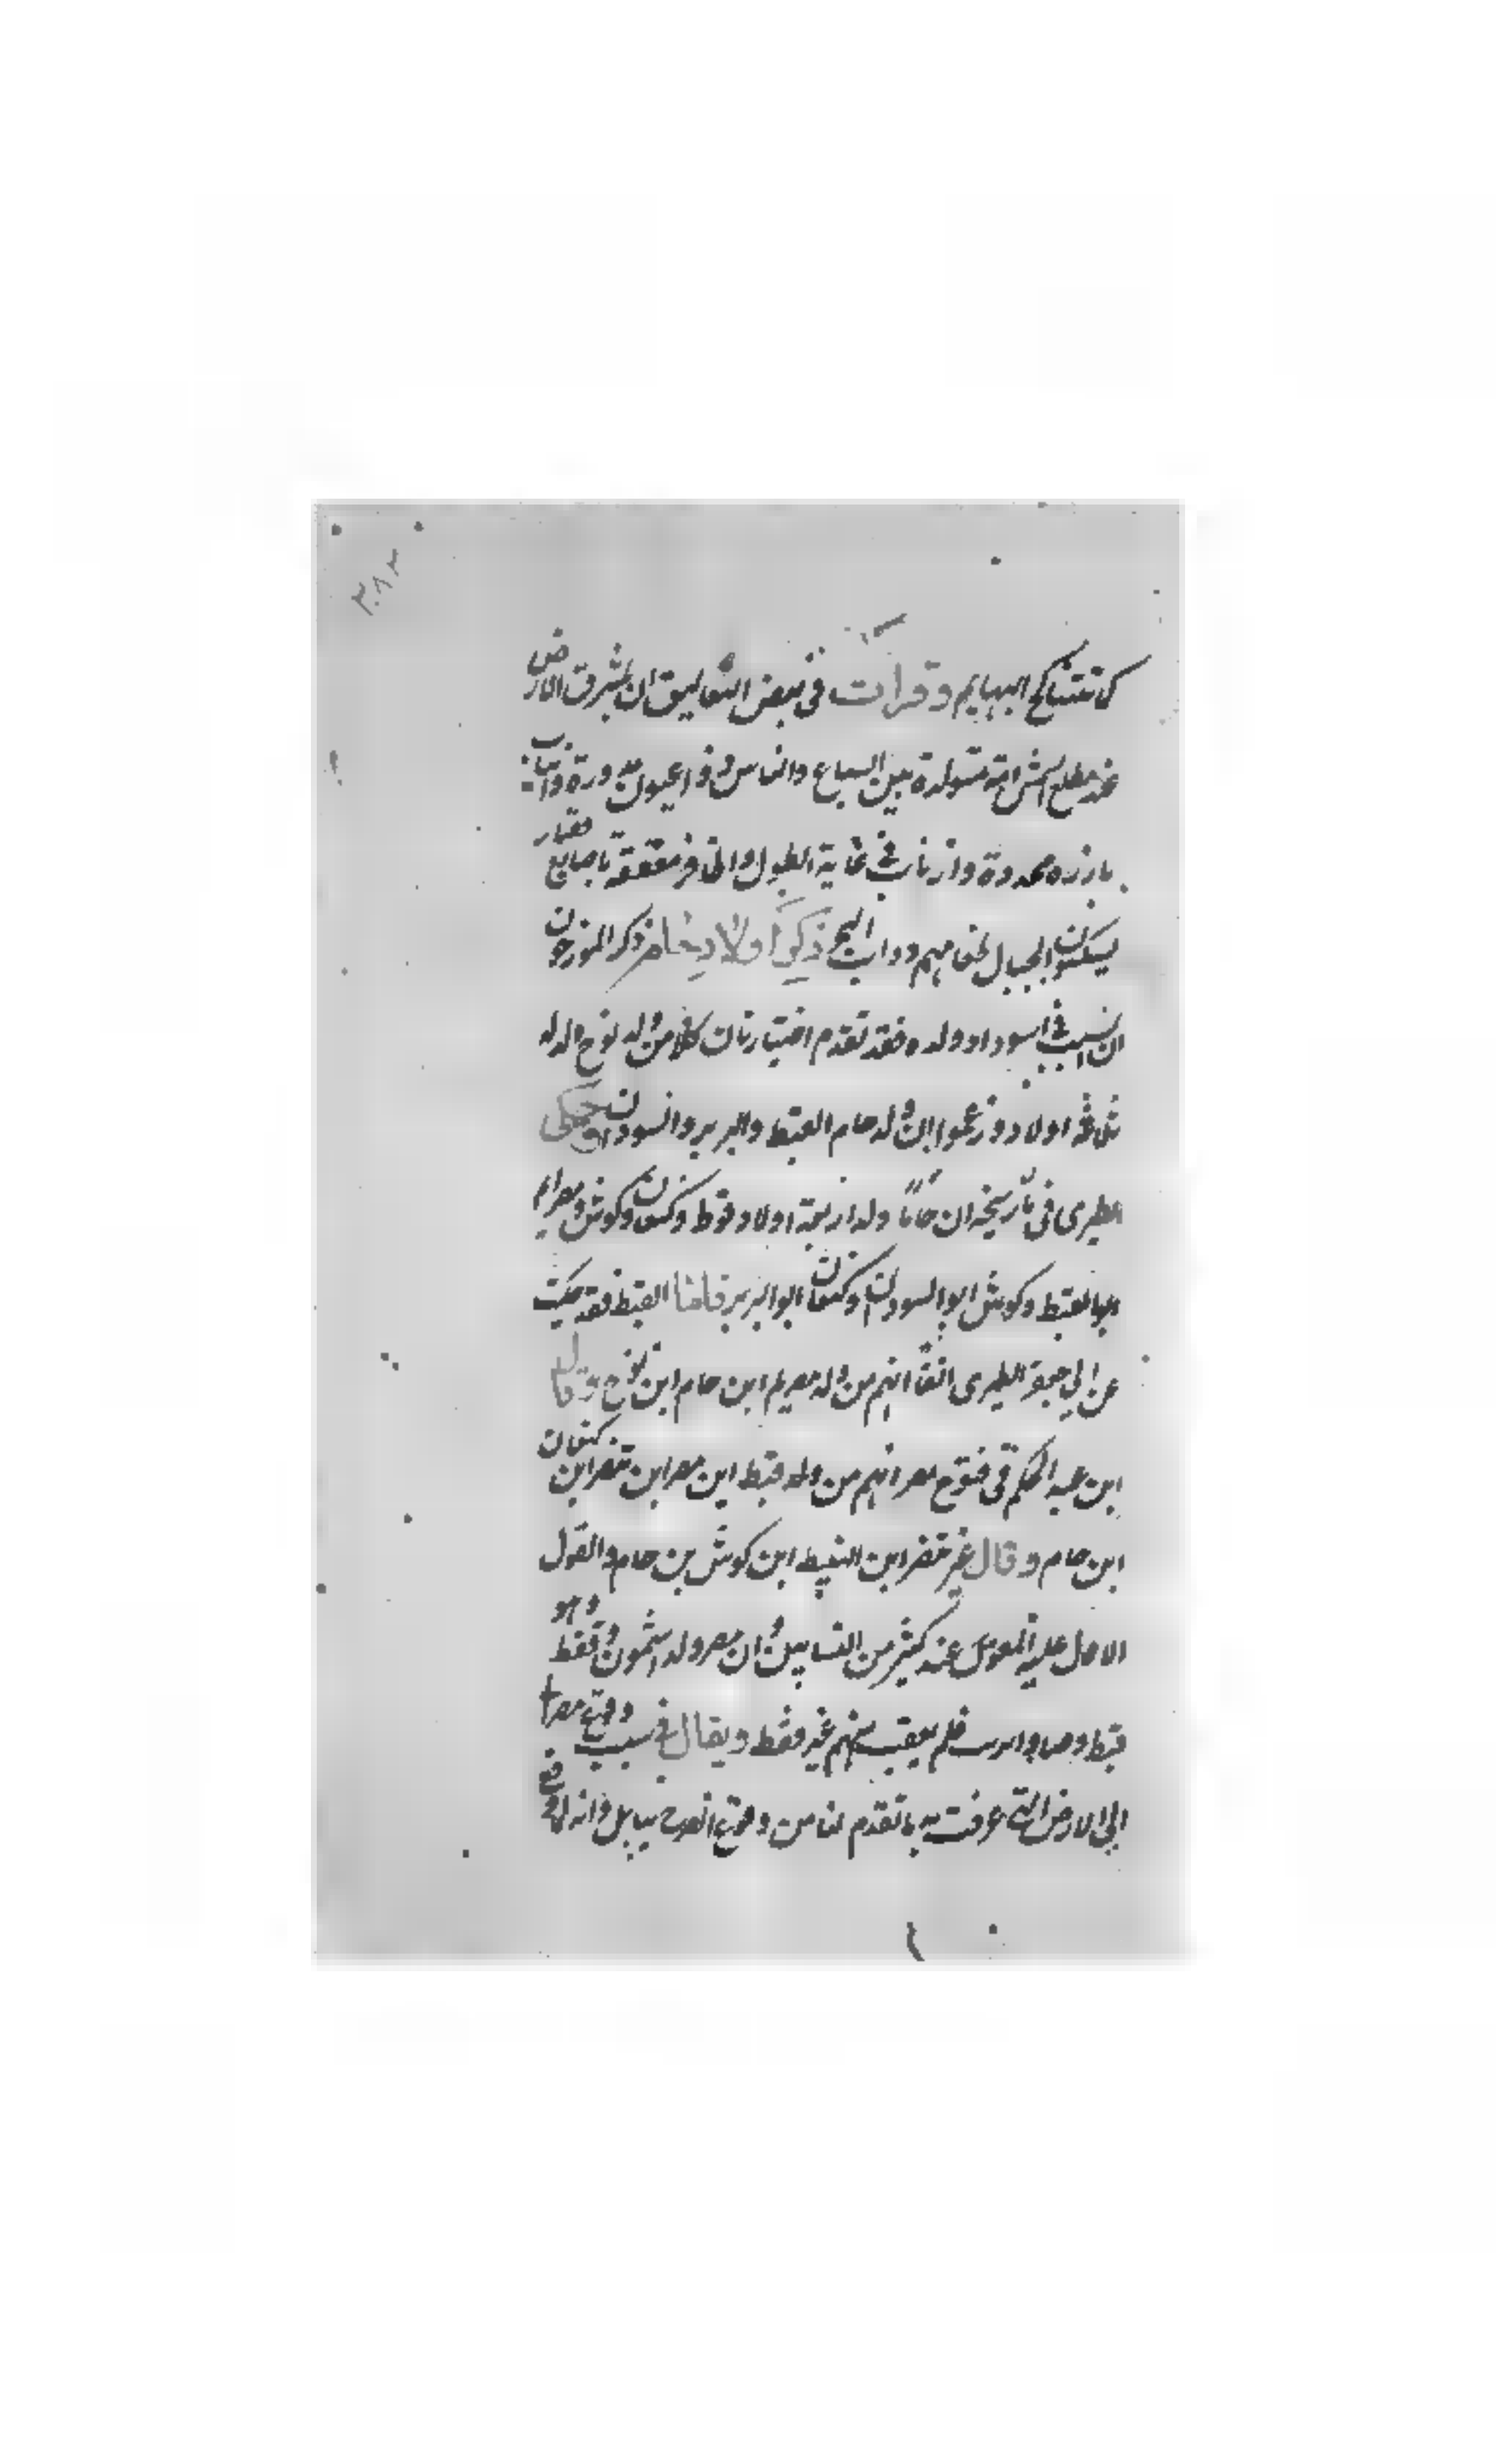 ٣٠٨٢
كما تتناكح البهايم وقرأت في بعض التعاليق ان بمشرق الارض
عند مطلع الشمس امة متولدة بين السباع والناس ذو اعين مدورة وانياب
بارزه محدودة واذناب في غاية الطول
يسكنون الجبال لحقامهم دواب البحر ذكر اولاد حام ذكر المورخون
ان السبب في اسوداد ولده فقد تقدم اختيارنا ان كلا من ولد نوح ولد له
ثلاثة اولاد وزعموا ان ولد حام القبط والبربر والسودان وحكى
الطبرى فى تأريخه ان حاماً ولد اربعة اولاد قوط وكنعان وكوش ومصرايم
ابو القبط وكوش ابو السودان وكنعان ابو البربر فاما القبط فقد حكيت
عن ابي جعفر الطبرى انفاً انهم من ولد مصريم ابن حام ابن نوح وقال
ابن عبد الحكم فى فتوح مصر انهم من ولد قبط ابن مصر ابن بنصر ابن كنعان
ابن حام وقال غيره ابن النبيط ابن كوش بن حام والقول
الاول عليه المعول عند كثير من النسابين وان مصر ولد اشمون وقفط وهو
قبط وصا واتريب فلم يعقب منهم غير قفط ويقال في سبب وقوع مصرا
الى الارض التي عرفت به ما تقدم لنا من وقوع الصرح ببابل وانه لما وقع